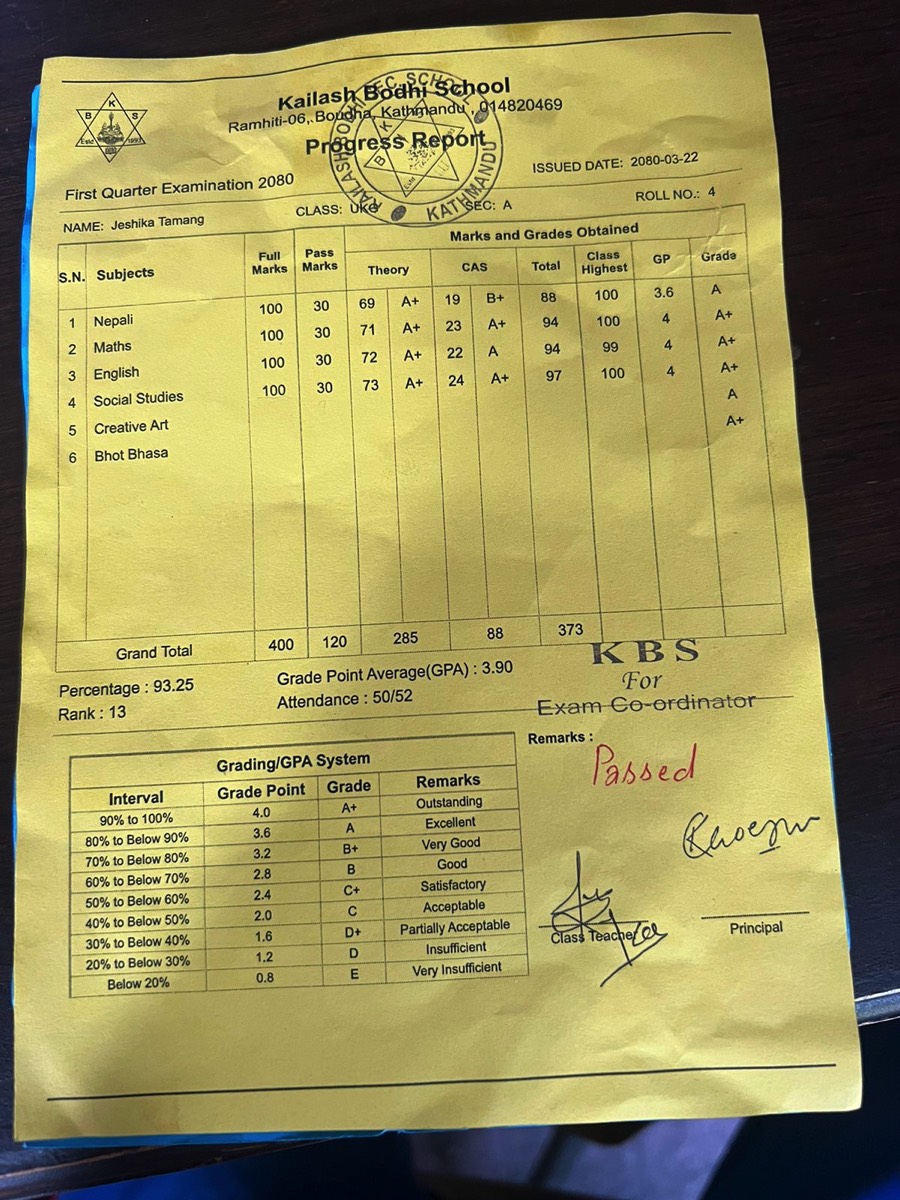 Kailash Bodhi School
Ramhiti-06, Boudha, Kathmandu , 014820469
Progress Report
K
B S
Estd 
KAILASH BODHI SEC. SCHOOL
KATHMANDU
First Quarter Examination 2080 ISSUED DATE: 2080-03-22
NAME: Jeshika Tamang CLASS: UKG SEC: A ROLL NO.: 4
S.N. Subjects Full Marks Pass Marks Marks and Grades Obtained
Theory CAS Total Class Highest GP Grade
1 Nepali 100 30 69 A+ 19 B+ 88 100 3.6 A
2 Maths 100 30 71 A+ 23 A+ 94 100 4 A+
3 English 100 30 72 A+ 22 A 94 99 4 A+
4 Social Studies 100 30 73 A+ 24 A+ 97 100 4 A+
5 Creative Art A
6 Bhot Bhasa A+
Grand Total 400 120 285 88 373
Percentage : 93.25 Grade Point Average(GPA) : 3.90
Rank : 13 Attendance : 50/52
KBS
For
Exam Co-ordinator
Remarks :
Passed
Grading/GPA System
Interval Grade Point Grade Remarks
90% to 100% 4.0 A+ Outstanding
80% to Below 90% 3.6 A Excellent
70% to Below 80% 3.2 B+ Very Good
60% to Below 70% 2.8 B Good
50% to Below 60% 2.4 C+ Satisfactory
40% to Below 50% 2.0 C Acceptable
30% to Below 40% 1.6 D+ Partially Acceptable
20% to Below 30% 1.2 D Insufficient
Below 20% 0.8 E Very Insufficient
Class Teacher
Principal